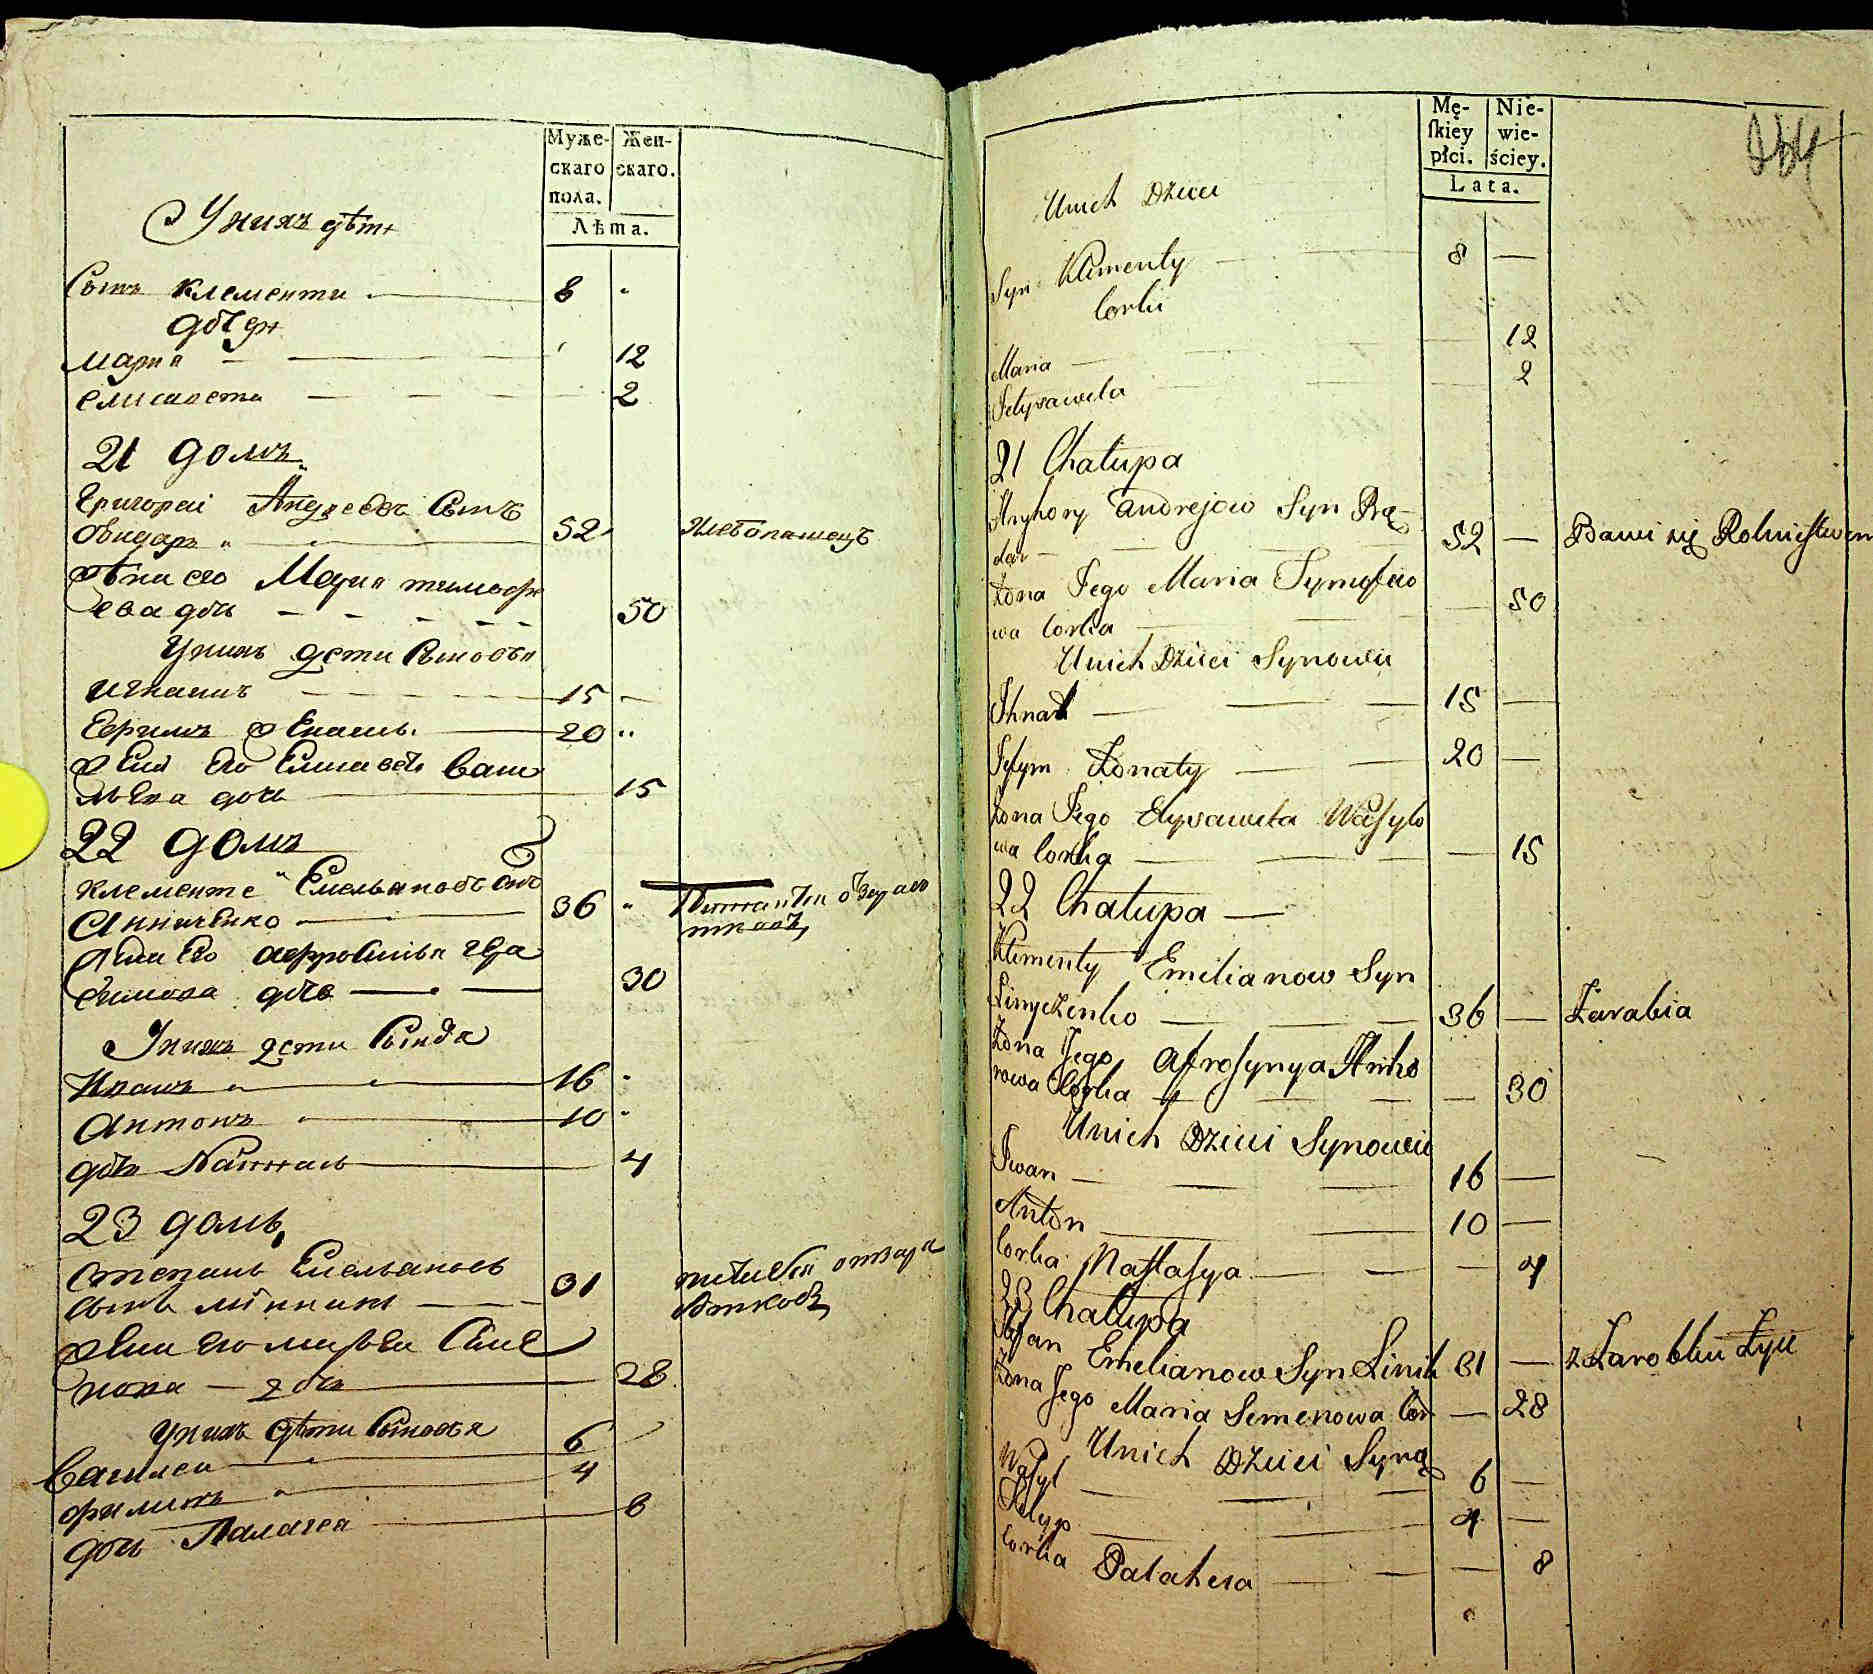 Муже-
скаго
пола.
Жен-
скаго.
Лѣта.
Унихъ дѣти
Сынъ Клементи 8
дочери
Мария 12
Елисавета 2
21 домъ
Григорей Андреевъ Сынъ
52 Хлебопашецъ
Жена его Мария тимофе
ева дочь 50
Унихъ дети Сыновья
Игнатъ 15
Ефимъ Женатъ 20
Жена Его Елисавета Васи
льева дочь 15
22 домъ
Клементе Емельяновъ Сынъ
36
Жена Его
дочь 30
Унихъ дети
Иванъ 16
Антонъ 10
дочь 4
23 домъ
Степанъ Емельяновъ
сынъ 31
Жена его Семе
нова дочь 28
Унихъ дѣти Сыновья
Василеи 6
Филипъ 4
дочь Палагея 8
Mę-
ſkiey
płci.
Nie-
wie-
ściey.
Lata.
Unich Dzieci
Syn Klimenty 8 —
Corki
Maria 12
Jelysaweta 2
21 Chatupa
Hryhory Andrejow Syn Rę-
dar 52 — Bawi się Rolnistwem
Żona Jego Maria Tymofieio
wa Corka — 50
Unich Dzieci Synowie
Ihnat 15 —
Jefym Żonaty 20 —
Żona Jego Elysaweta Wasylo
wa Corka — 15
22 Chatupa —
Klimenty Emilianow Syn
Linyczenko 36 — Zarabia
Żona Jego Afrosynya Hriho
rowa Corka — 30
Unich Dzieci Synowie
Iwan 16 —
Anton 10 —
Corka Nastasya — 4
23 Chatupa
Stefan Emelianow Syn Linik 31 — z Zarobku Żyie
Żona Jego Maria Semenowa Cor — 28
Unich Dzieci Syny
Wasyl 6 —
Filyp 4 —
Corka Palaheia — 8